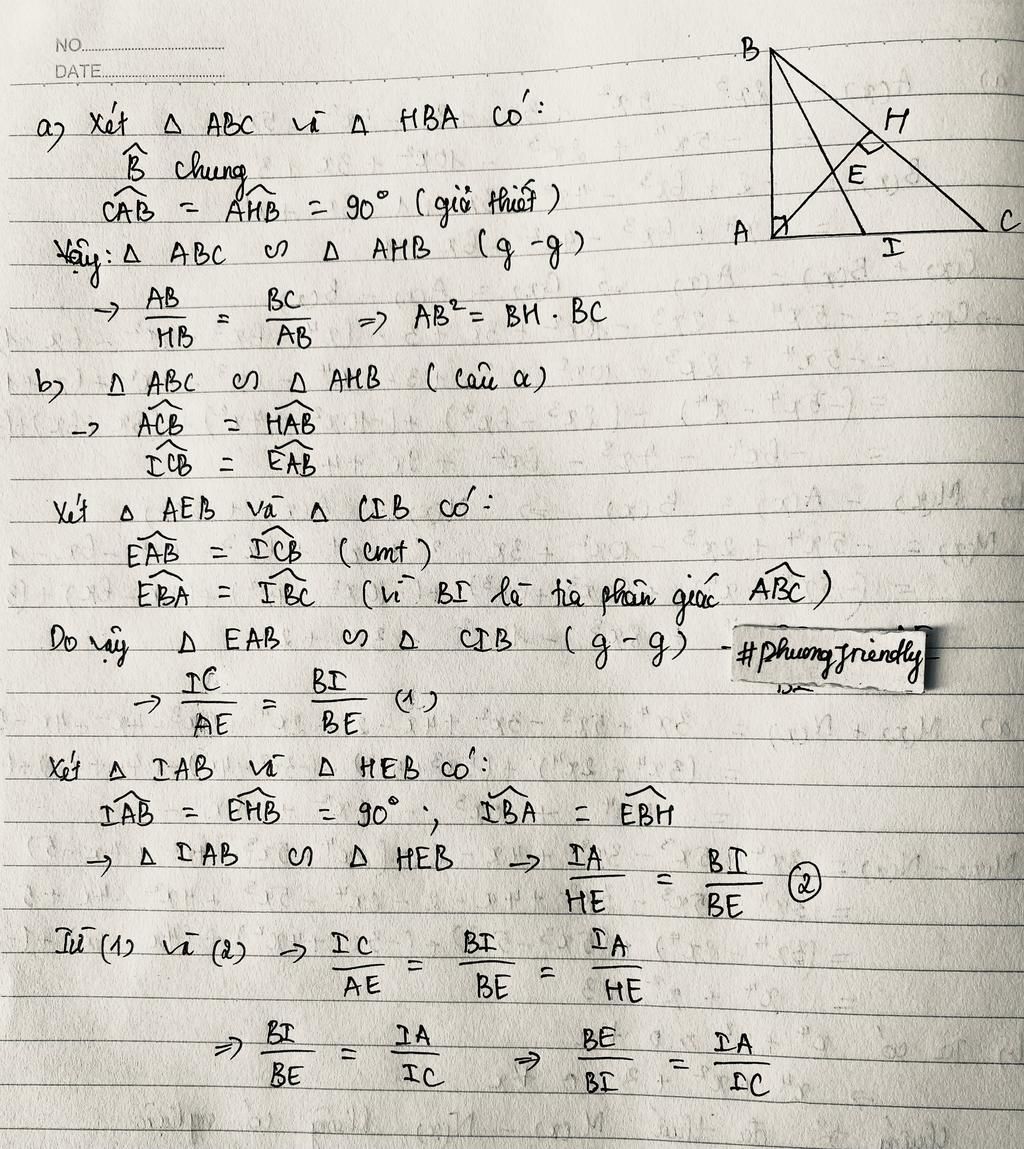 NO.
DATE
a) Xét Δ ABC và Δ HBA có:
B̂ chung
CAB = AHB = 90° (giả thiết)
Vậy: Δ ABC ∽ Δ AHB (g-g)
→ AB/HB = BC/AB ⇒ AB² = BH . BC
b) Δ ABC ∽ Δ AHB (câu a)
→ ACB = HAB
ICB = EAB
Xét Δ AEB và Δ CIB có:
EAB = ICB (cmt)
EBA = IBC (vì BI là tia phân giác ABC)
Do vậy Δ EAB ∽ Δ CIB (g-g)
#phuongfriendly
→ IC/AE = BI/BE (1)
Xét Δ IAB và Δ HEB có:
IAB = EHB = 90°; IBA = EBH
→ Δ IAB ∽ Δ HEB → IA/HE = BI/BE (2)
Từ (1) và (2) → IC/AE = BI/BE = IA/HE
⇒ BI/BE = IA/IC ⇒ BE/BI = IA/IC
B
H
E
A
I
C